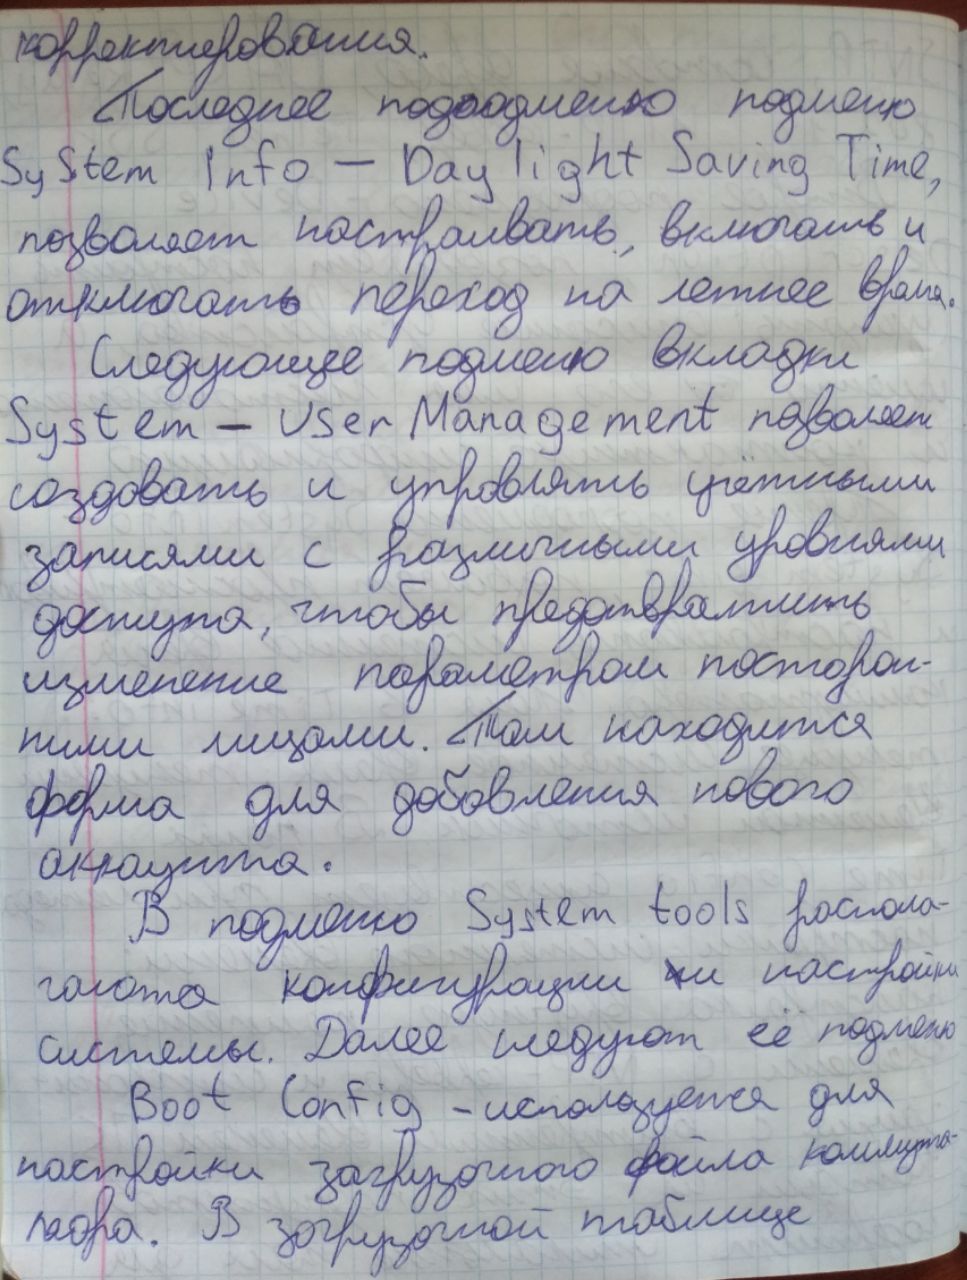 корректирования.
Последнее подподменю подменю
System Info — Daylight Saving Time,
позволяет настраивать, включать и
отключать переход на летнее время.
Следующее подменю вкладки
System — User Management позволяет
создовать и управлять учётными
записями с различными уровнями
доступа, чтобы предотвратить
изменение параметром посторон-
ними лицами. Там находится
форма для добавления нового
аккаунта.
В подменю System tools распола-
гаются конфигурации и настройки
системы. Далее следуют её подменю
Boot Config - используется для
настройки загрузочного файла коммута-
тора. В загрузочной таблице